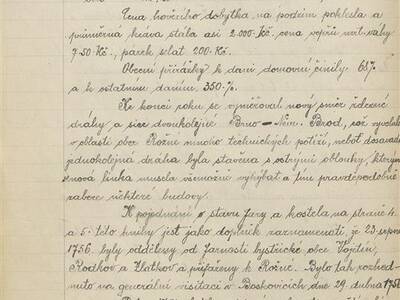 Cena hovězího dobytka na podzim poklesla a
průměrná kráva stála asi 2.000 Kč, cena vepřů
7·50 Kč, párek selat 200 Kč.
Obecní přirážky k dani domovní činily 68%
a k ostatním daním 350%.
Ke konci roku se vyměřoval nový směr
dráhy a sice dvoukolejné Brno – Něm. Brod, což
v oblasti obce Rožné mnoho technických potíží, neboť dosavadní
jednokolejná dráha byla stavěna s ostrými oblouky, kterým
nová linka musela všemožně vyhýbat a tím pravděpodobně
zabere některé budovy.
K pojednání o stavu fary a kostela na straně 4
a 5. této knihy jest jako doplněk zaznamenati, že 23. srpna
1756. byly odděleny od farnosti bystřické obce Vojetín,
Rodkov a Zlatkov a přifařeny k Rožné. Bylo tak rozhod-
nuto na generální visitaci v Boskovicích dne 29. dubna 175